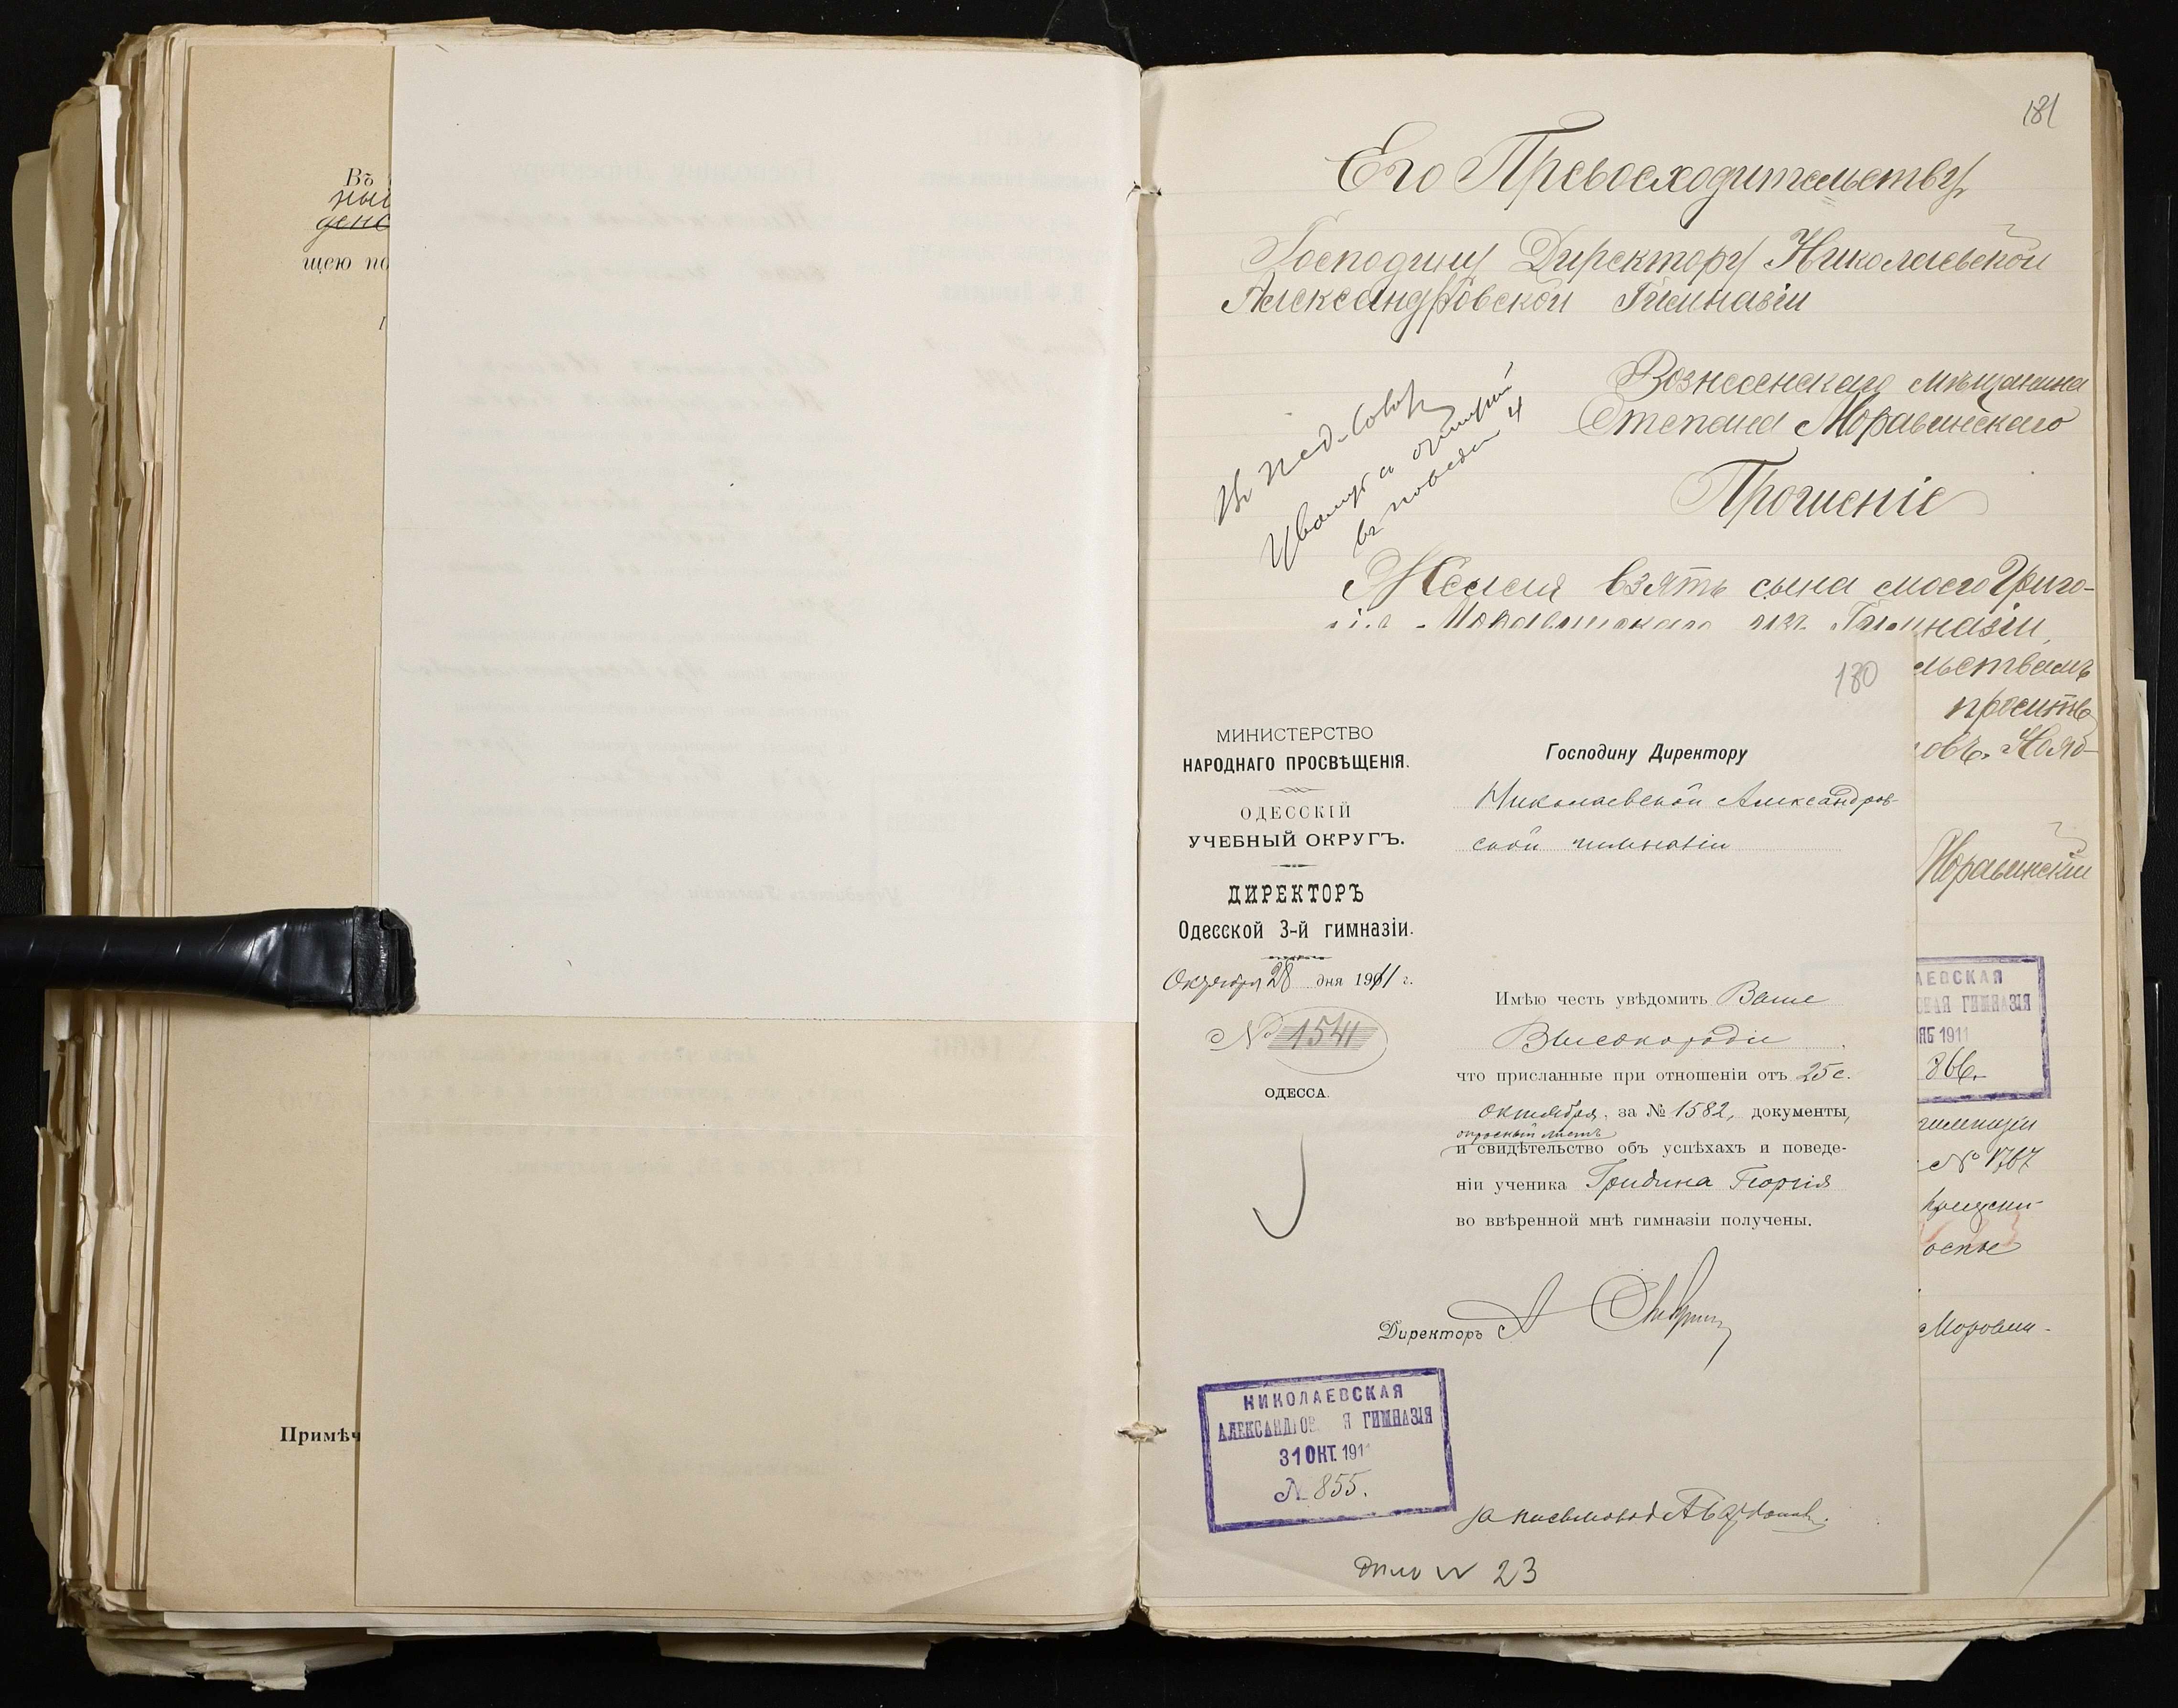 Въ
ны
щею по
Примѣч
181
Его Превосходительству
Господину Директору Николаевской
Александровской Гимназіи
Вознесенскаго мѣщанина
Степана Моравинскаго
Прошеніе
Въ пед. Совѣтъ
въ поведеніи
Желая взять сына моего Григо-
изъ Гимназіи,
льствамъ
просить
Нояб-
Моравинскій
АЕВСКАЯ
СКАЯ ГИМНАЗІЯ
ЯБ 1911
866.
гимназіи
№ 1767
оспѣ
Моравин-
180
МИНИСТЕРСТВО
НАРОДНАГО ПРОСВѢЩЕНІЯ.
ОДЕССКІЙ
УЧЕБНЫЙ ОКРУГЪ.
ДИРЕКТОРЪ
Одесской 3-й гимназіи.
Октября 28 дня 1911 г.
№ 1541
ОДЕССА.
Господину Директору
Николаевской Александров-
ской гимназіи
Имѣю честь увѣдомить Ваше
Высокородіе
что присланные при отношеніи отъ 25 с.
октября, за № 1582, документы,
опросный листъ
и свидѣтельство объ успѣхахъ и поведе-
ніи ученика Гридина Георгія
во ввѣренной мнѣ гимназіи получены.
Директоръ А
НИКОЛАЕВСКАЯ
АЛЕКСАНДРОВ Я ГИМНАЗІЯ
31 ОКТ. 191
№ 855.
за письмовод
Дѣло № 23